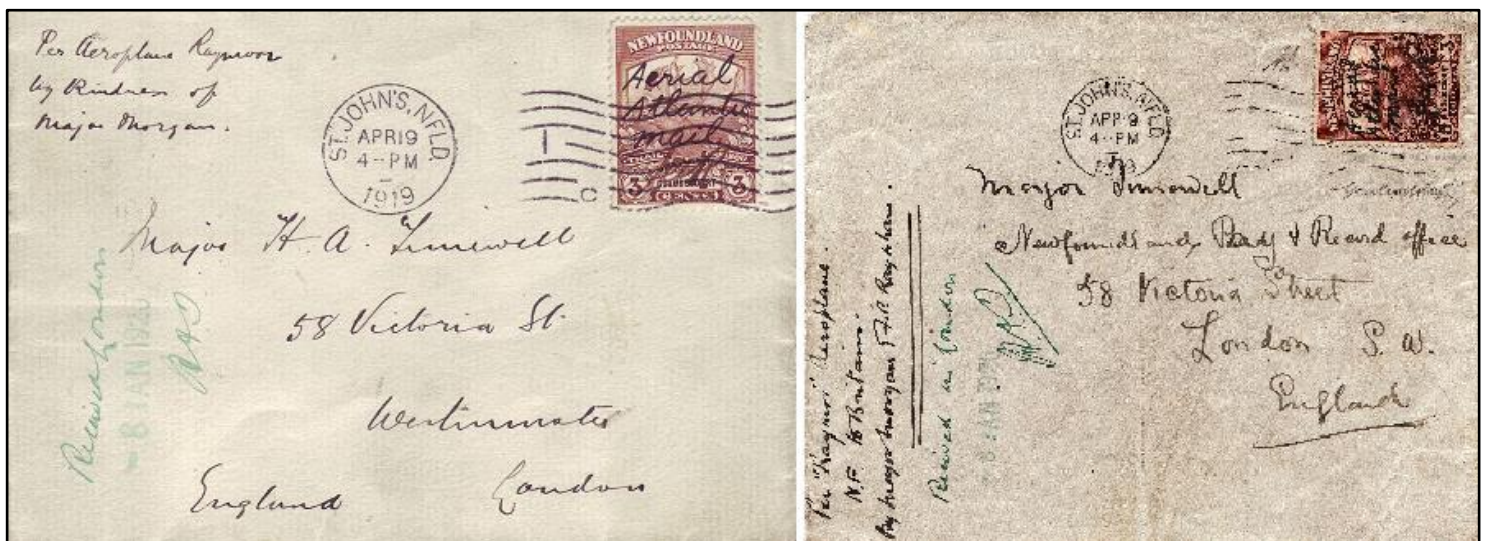 Per Aeroplane Raymor
by Kindness of
Major Morgan.
ST. JOHN'S, NFLD.
APR 19
4-PM
1919
1
C
NEWFOUNDLAND
POSTAGE
Aerial
Atlantic
mail
3 3
CENTS
Major H. A. Timewell
58 Victoria St.
Westminster
London
England
Received London
- 8 JAN 1920
ST. JOHN'S, NFLD.
APR 19
4-PM
Major Timewell
Newfoundland Pay & Record office
58 Victoria Street
London S. W.
England
Per "Raymor" Aeroplane.
N.F. to Britain.
By Major Morgan & F.P. Raynham.
Received in London
8 JAN